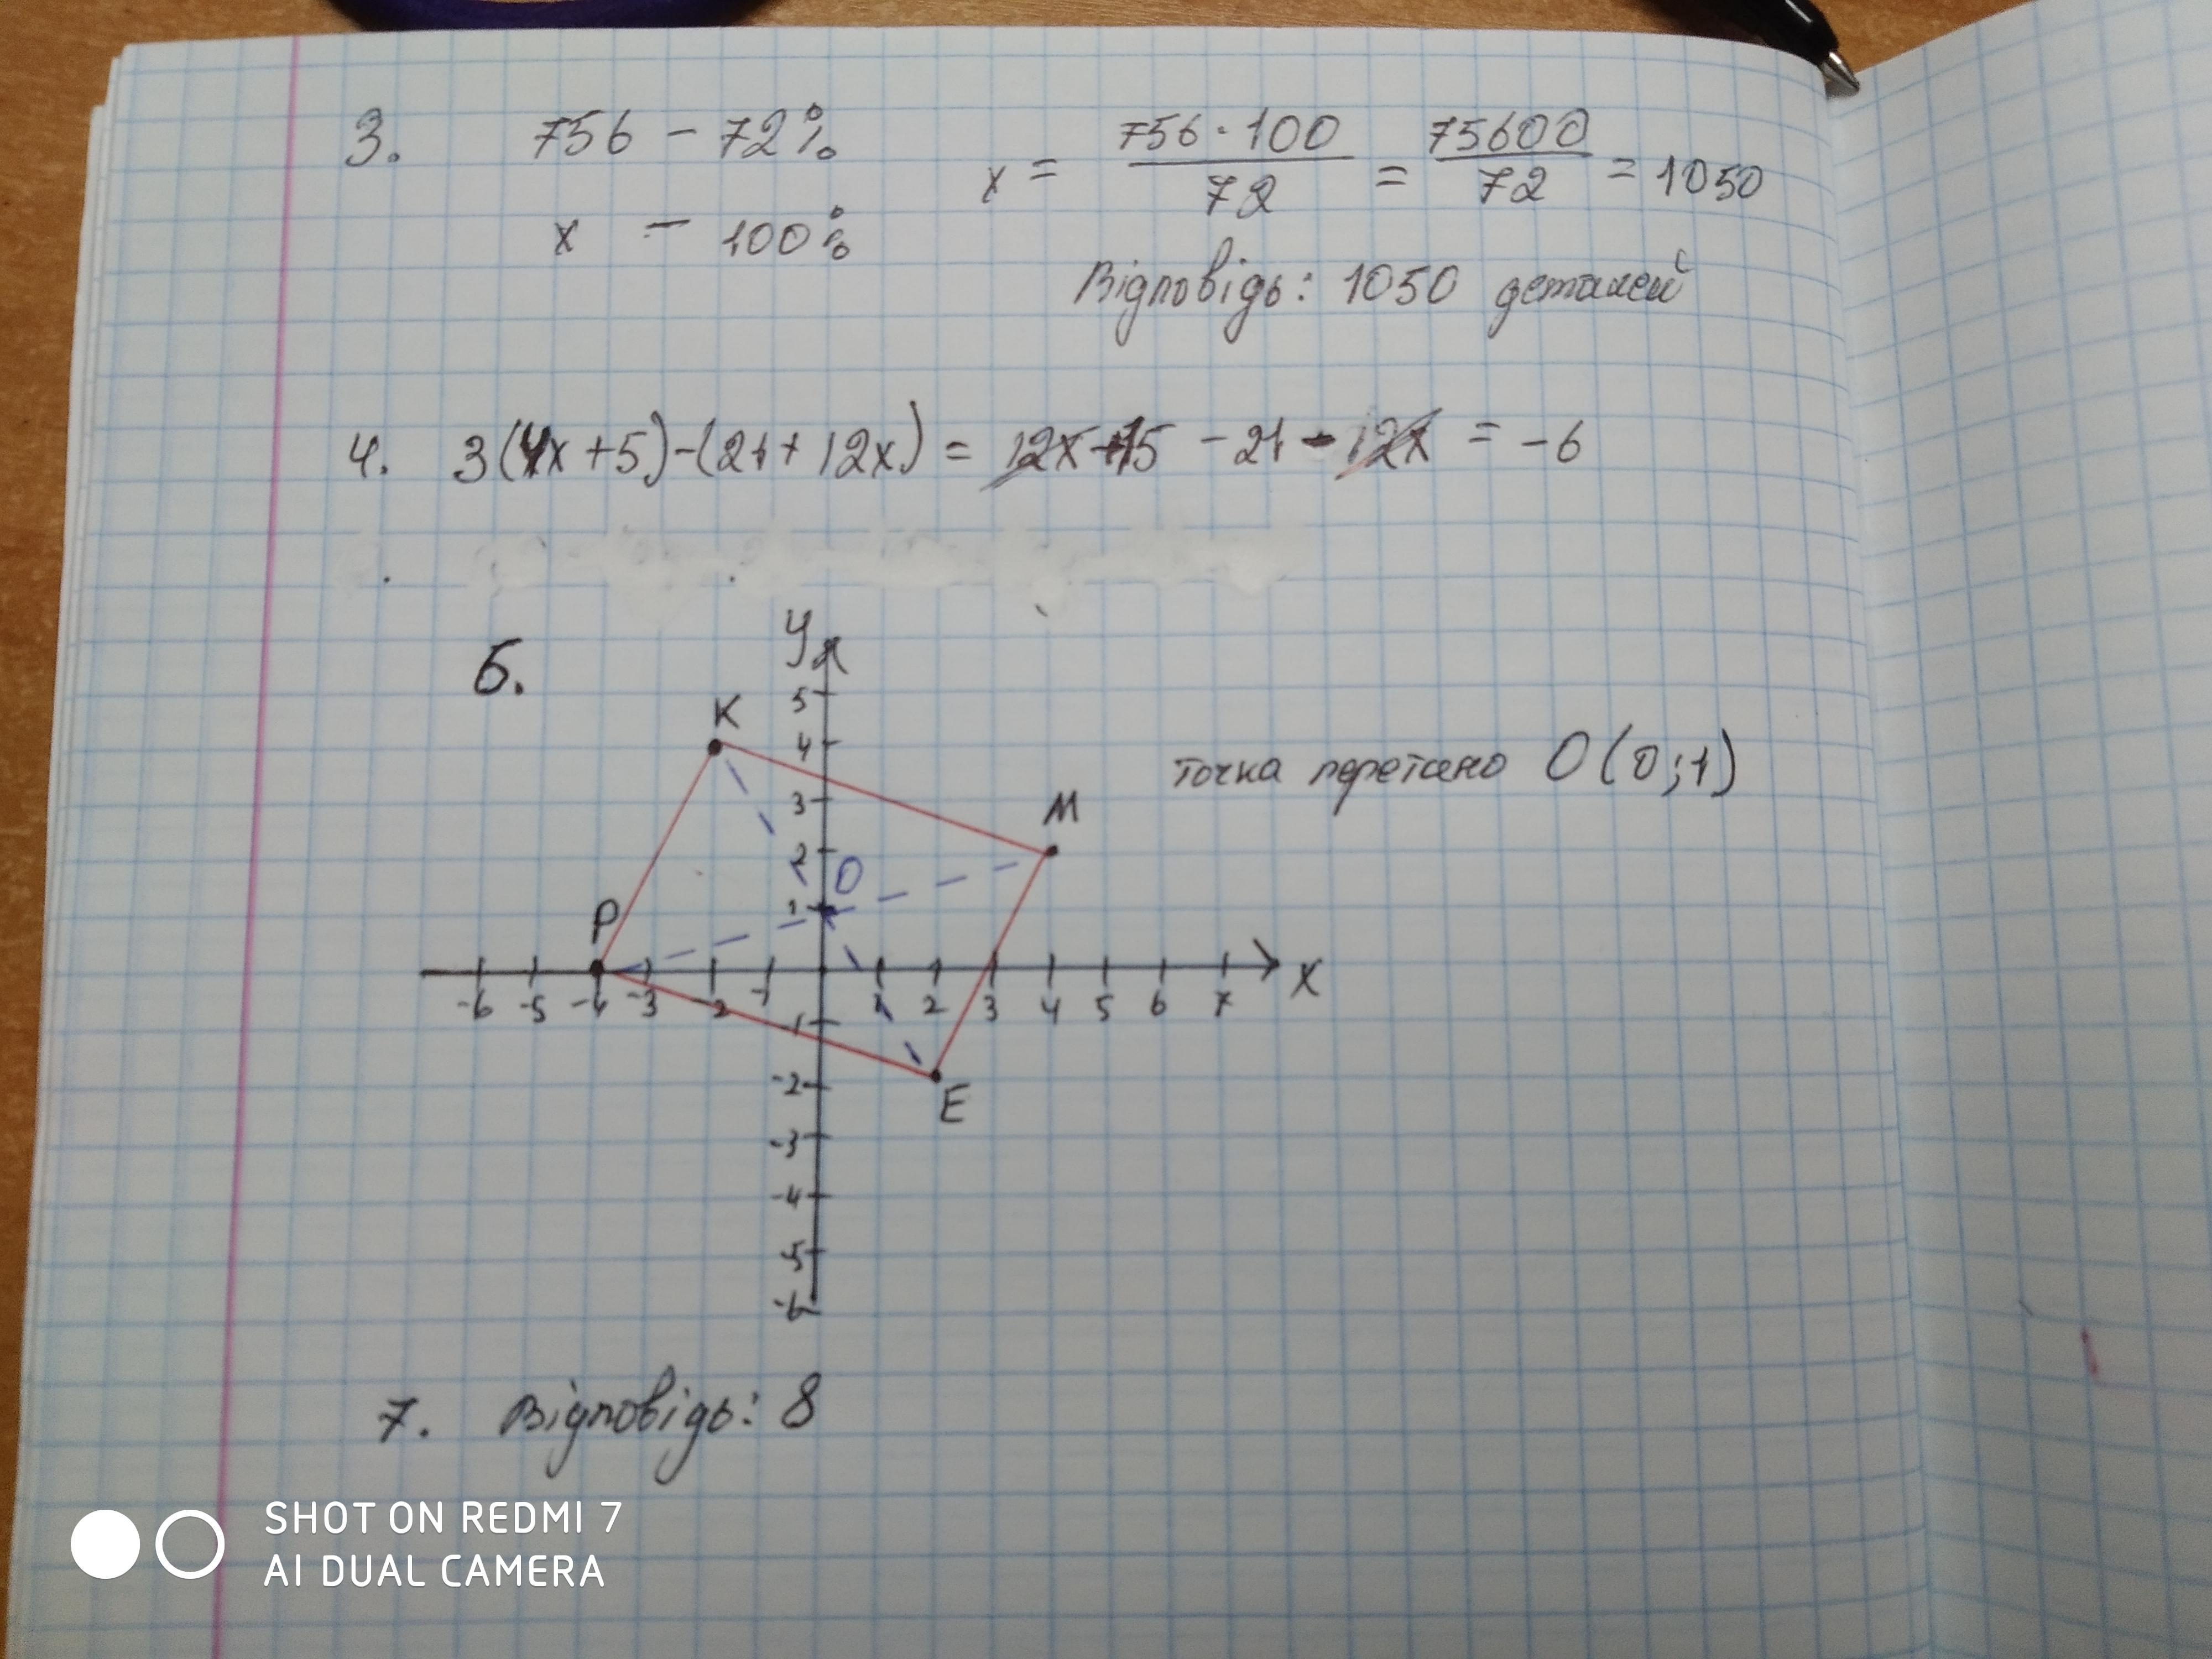 3. 756 – 72% x = 756·100/72 = 75600/72 = 1050
x – 100%
Відповідь: 1050 деталей
4. 3(4x+5)-(21+12x) = 12x+15 - 21 - 12x = -6
6. y
5
K
4
точка перетино O(0;1)
3
M
2
O
1
P
x
-6 -5 -4 -3 -2 -1 1 2 3 4 5 6 7
-1
-2
E
-3
-4
-5
-6
7. Відповідь: 8
SHOT ON REDMI 7
AI DUAL CAMERA